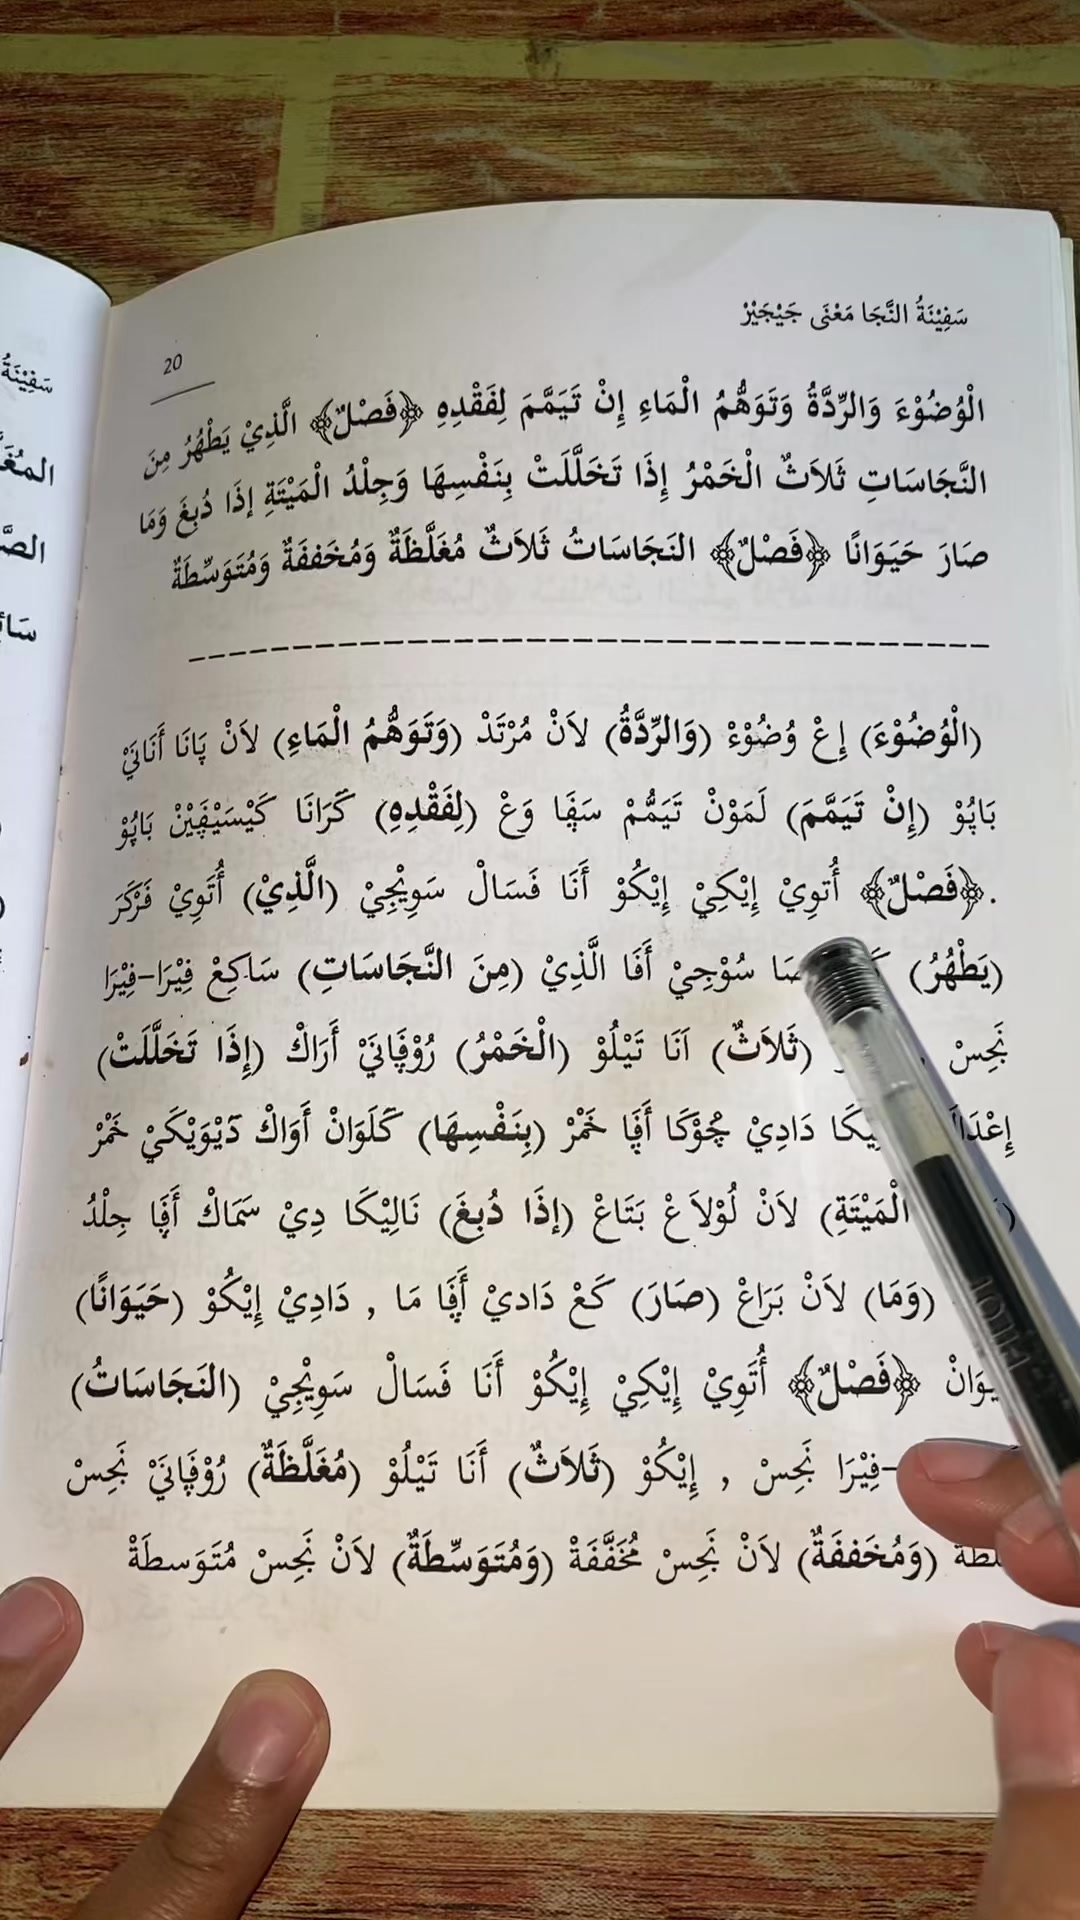 سَفِيْنَةُ النَّجَا مَعْنَى جَيْجَيْرْ
20
الْوُضُوْءَ وَالرِّدَّةُ وَتَوَهُّمُ الْمَاءِ إِنْ تَيَمَّمَ لِفَقْدِهِ ﴿فَصْلٌ﴾ الَّذِيْ يَطْهُرُ مِنَ
النَّجَاسَاتِ ثَلاَثٌ الْخَمْرُ إِذَا تَخَلَّلَتْ بِنَفْسِهَا وَجِلْدُ الْمَيْتَةِ إِذَا دُبِغَ وَمَا
صَارَ حَيَوَانًا ﴿فَصْلٌ﴾ النَجَاسَاتُ ثَلاَثٌ مُغَلَّظَةٌ وَمُخَففَةٌ وَمُتَوَسِّطَةٌ
(الْوُضُوْءَ) إِعْ وُضُوْءْ (وَالرِّدَّةُ) لاَنْ مُرْتَدْ (وَتَوَهُّمُ الْمَاءِ) لاَنْ پَانَا أَنَانَيْ
بَاپُوْ (إِنْ تَيَمَّمَ) لَمَوْنْ تَيَمُّمْ سَڤَا وَعْ (لِفَقْدِهِ) كَرَانَا كَيْسَيْڤَيْنْ بَاپُوْ
. ﴿فَصْلٌ﴾ أُتَوِيْ إِيْكِيْ إِيْكُوْ أَنَا فَسَالْ سَوِيْجِيْ (الَّذِيْ) أُتَوِيْ فَرْكَرَ
(يَطْهُرُ) سُوْجِيْ أَفَا الَّذِيْ (مِنَ النَّجَاسَاتِ) سَاكِعْ فِيْرَا-فِيْرَا
نَجِسْ (ثَلاَثٌ) اَنَا تَيْلُوْ (الْخَمْرُ) رُوْڤَانَيْ أَرَاكْ (إِذَا تَخَلَّلَتْ)
دَادِيْ چُوْكَا أَڤَا خَمْرْ (بِنَفْسِهَا) كَلَوَانْ أَوَاكْ دَيْوَيْكَيْ خَمْرْ
الْمَيْتَةِ) لاَنْ لُوْلاَعْ بَتَاعْ (إِذَا دُبِغَ) نَالِيْكَا دِيْ سَمَاكْ أَڤَا جِلْدُ
(وَمَا) لاَنْ بَرَاعْ (صَارَ) كَعْ دَادِيْ أَڤَا مَا , دَادِيْ إِيْكُوْ (حَيَوَانًا)
﴿فَصْلٌ﴾ أُتَوِيْ إِيْكِيْ إِيْكُوْ أَنَا فَسَالْ سَوِيْجِيْ (النَجَاسَاتُ)
-فِيْرَا نَجِسْ , إِيْكُوْ (ثَلاَثٌ) أَنَا تَيْلُوْ (مُغَلَّظَةٌ) رُوْڤَانَيْ نَجِسْ
(وَمُخَففَةٌ) لاَنْ نَجِسْ مُخَفَّفَةْ (وَمُتَوَسِّطَةٌ) لاَنْ نَجِسْ مُتَوَسطَةْ